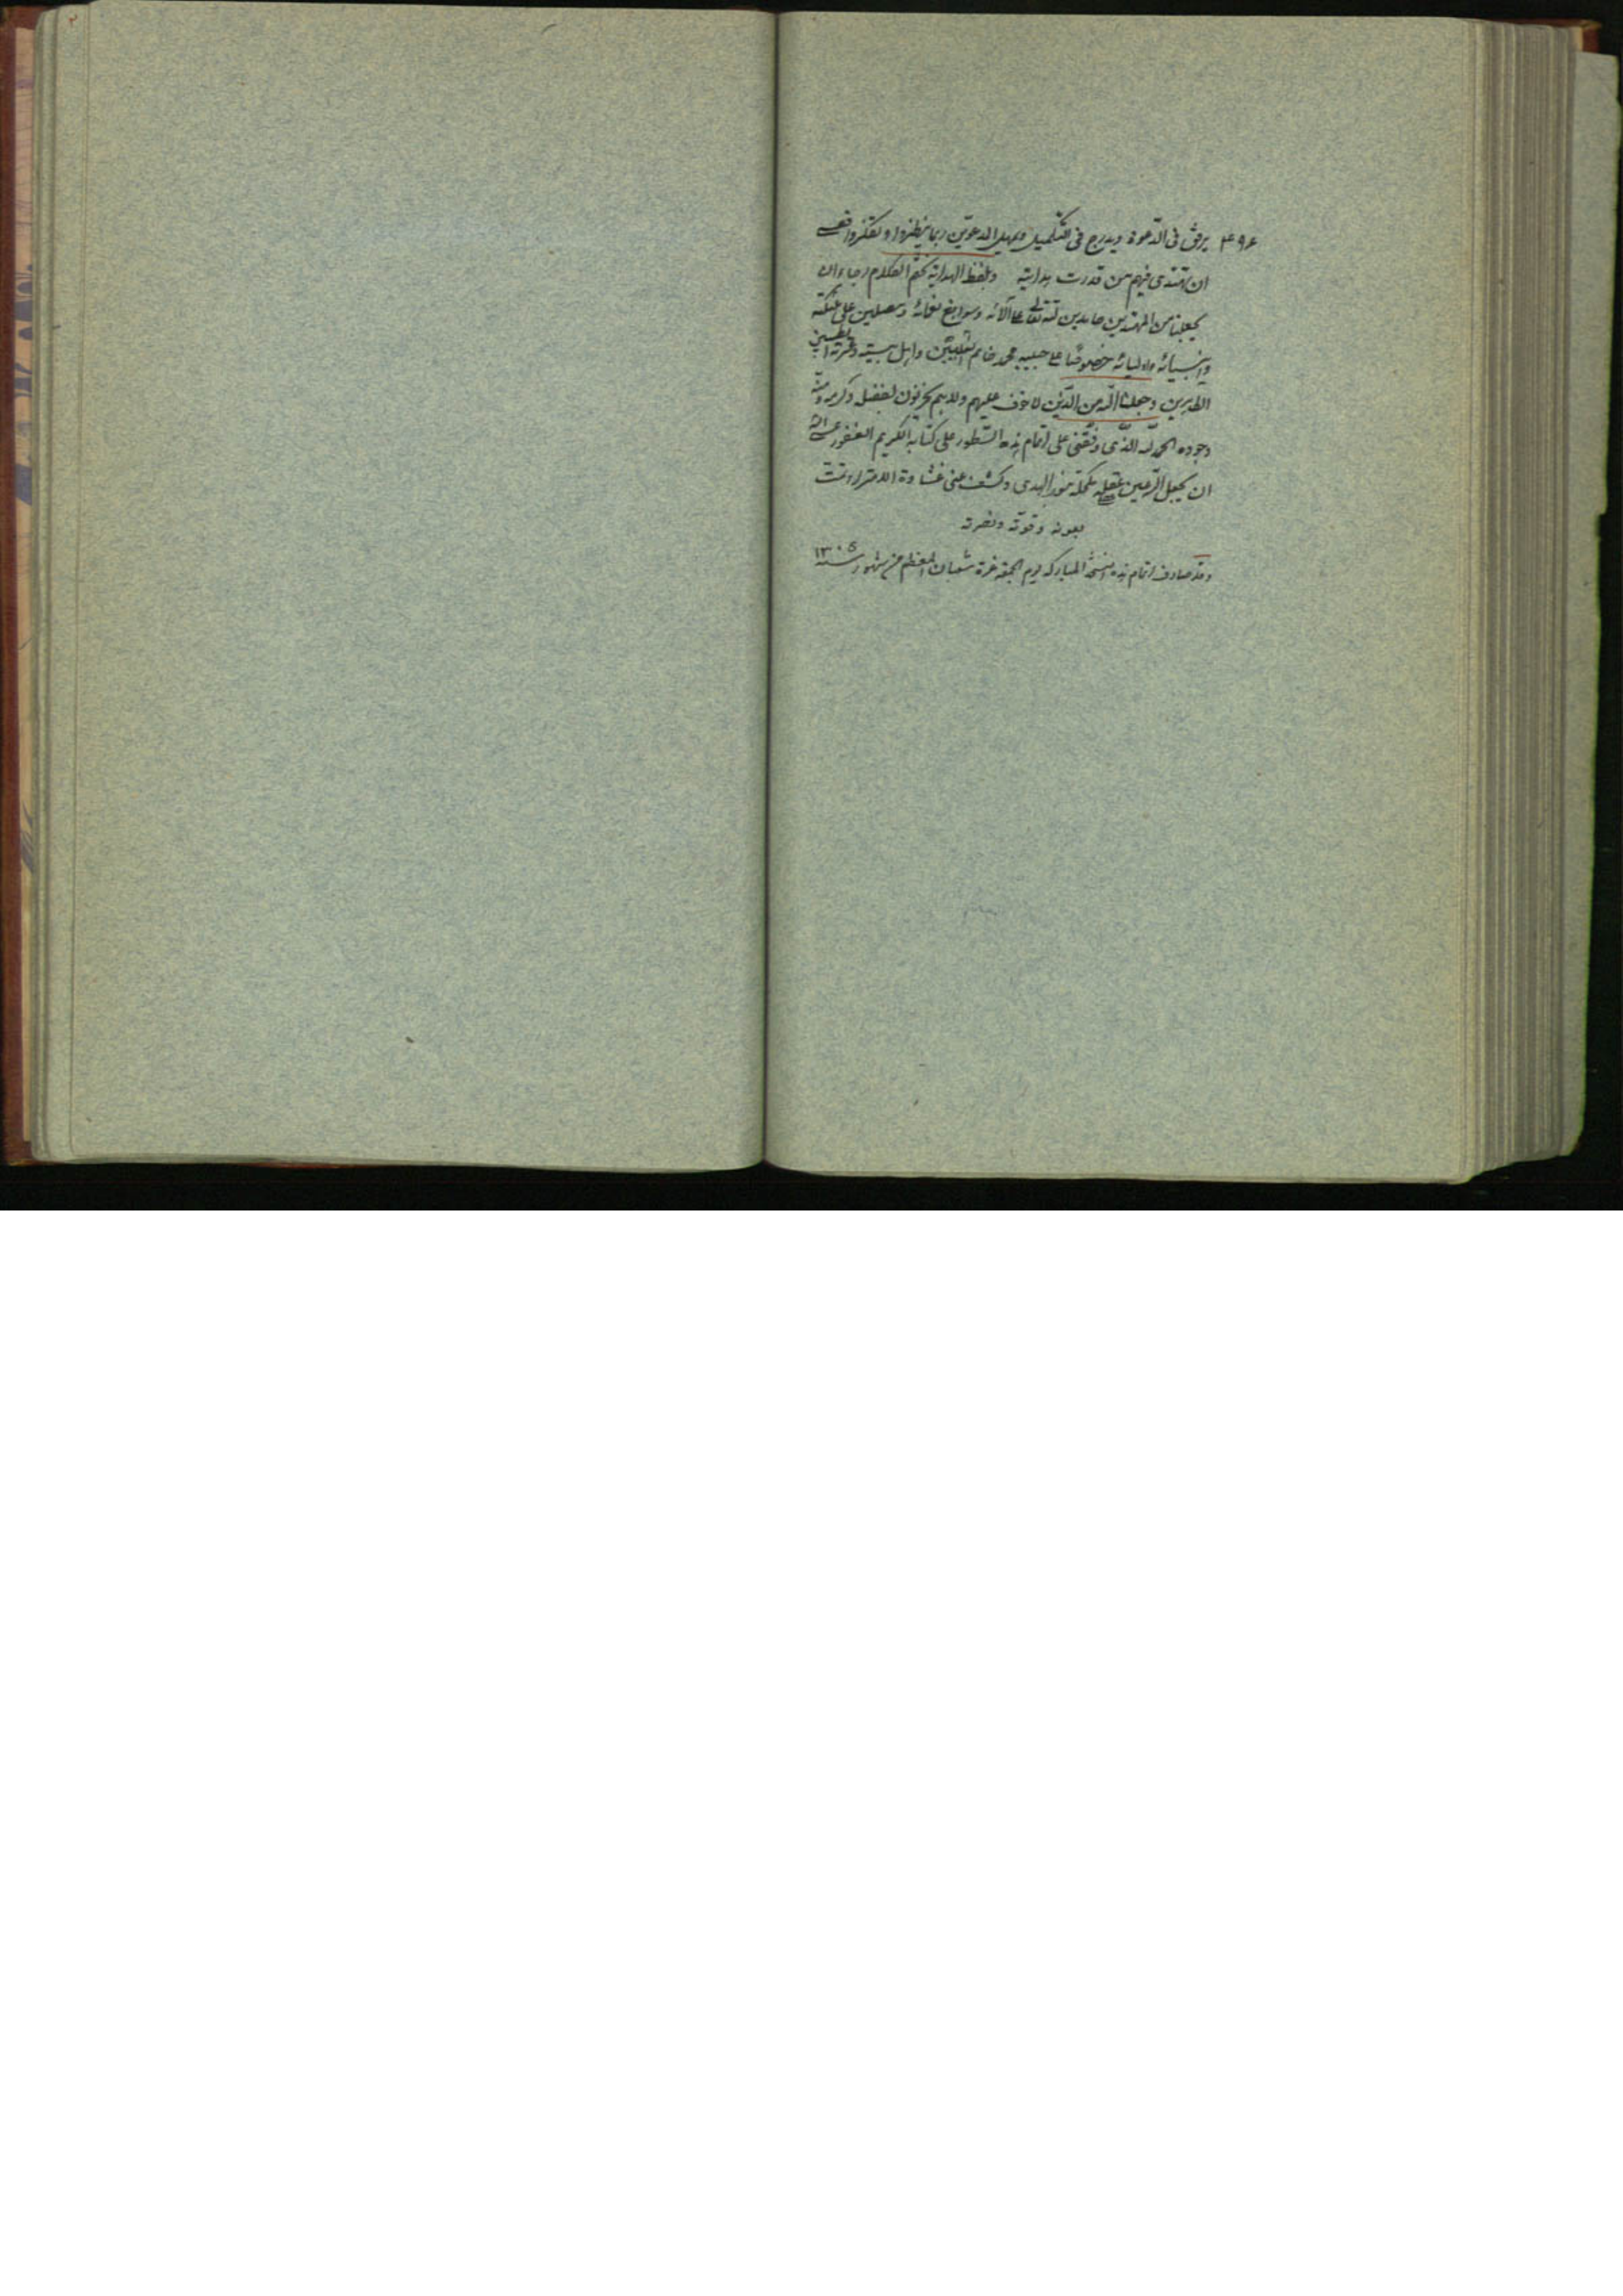 ٢
٤٩٤ يرفق فى الدّعوة ويدرج فى التكميل ويمهل المدعوّين ربما ينظروا وتفكّروا فعسى
ان تهتدى فيهم من قدرت هدايته وبلفظ الهداية نختم الكلام رجاء ان
يجعلنا من المهتدين حامدين لله تعالى على آلائه وسوابغ نعمائه ومصلين على ملئكته
وانبيائه واوليائه خصوصًا على حبيبه محمد خاتم النبيّين واهل بيته وعترته الطيبين
الطاهرين وجعلنا الله من الّذين لا خوف عليهم ولا هم يحزنون بفضله وكرمه ومنّه
وجوده الحمد لله الّذى وفّقنى على اتمام هذه السّطور على كتابه الكريم الغفور عسى الله
ان يجعل بنور الهدى وكشف عنى غشاوة وتمت
بعونه وقوّته ونصرته
وقد صادف اتمام هذه النسخة المباركه يوم الجمعة غرة شعبان المعظم من شهور سنة ١٣٠٥